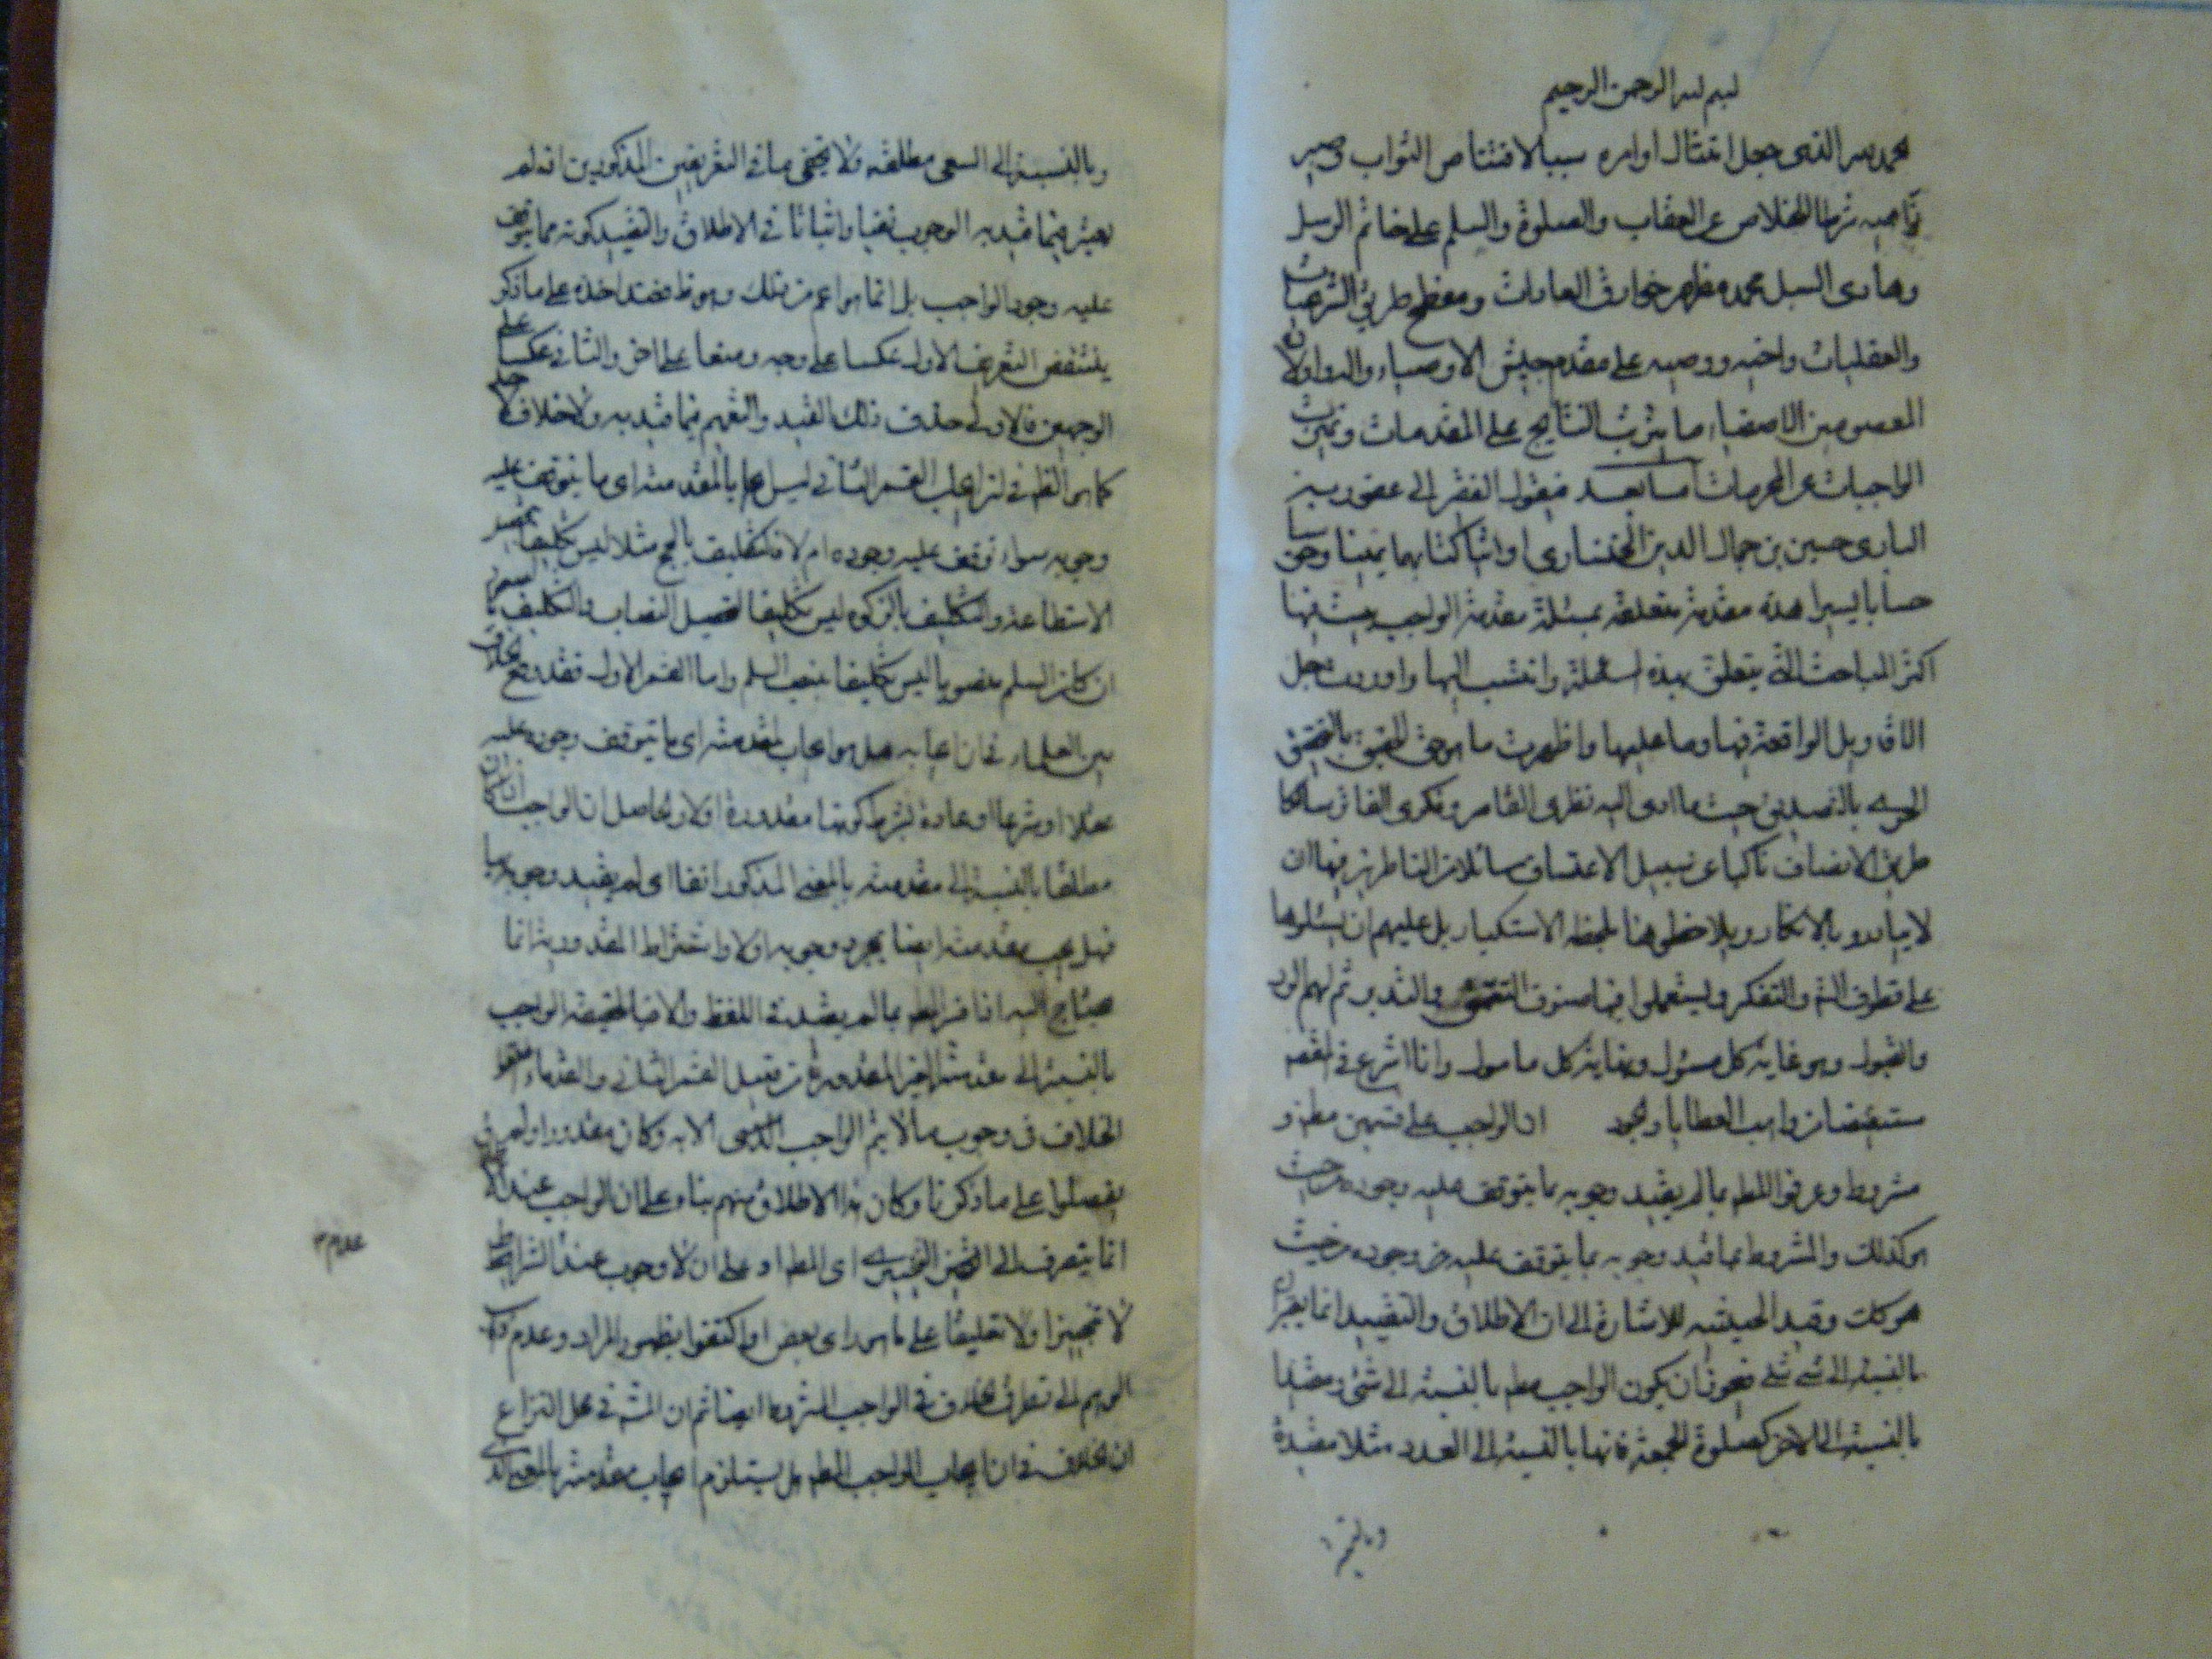 بسم الله الرحمن الرحيم
نحمد الله الذى جعل امتثال اوامره سببا لاقتناص الثواب وصير
نواهيه شرطا للخلاص عن العقاب والصلوة والسلم على خاتم الرسل
وهادى السبل محمد مظهر خوارق العادات وموضح طريق الشرعيات
والعقليات واخيه ووصيه على مقدم جيش الاوصياء واله واولاده
المعصومين الاصفياء ما يترتب النتايج على المقدمات وتميزت
الواجبات عن المحرمات اما بعد فيقول الفقير الى عفو ربه
البارى حسين بن جمال الدين الخنسارى اوتيا كتابهما يمينا وحوسبا
حسابا يسيرا هذه مقدمة متعلقة بمسئلة مقدمة الواجب بينت فيها
اكثر المباحث التى يتعلق بهذه المسئلة وانتسب اليها واوردت جل
الاقاويل الواقعة فيها وما عليها واظهرت ما هو حق الحقيق بالتحقيق
الحرى بالتصديق حيث ما ادى اليه نظرى القاصر وفكرى الفاتر سالكا
طريق الانصاف ناكبا عن سبيل الاعتساف سائلا من الناظرين فيها ان
لا يبادروا بالانكار ويلاحظوها بلحظ الاستكبار بل عليهم ان يسئلوها
على طرف التفكر ويستعملوا فيها صنوف التعمق والتدبر ثم لهم الرد
والقبول وهو غاية كل مسئول ونهاية كل مامول وانا اشرع فى المقصود
مستفيضا من واهب العطايا والجود ان الواجب على قسمين مطلق و
مشروط وعرفوا المطلق بما لم يقيد وجوبه بما يتوقف عليه وجوده من حيث
هو كذلك والمشروط بما قيد وجوبه بما يتوقف عليه وجوده من حيث
هو كذلك وقيد الحيثية للاشارة الى ان الاطلاق والتقييد انما يعتبران
بالنسبة الى شئ شئ فيجوز ان يكون الواجب مطلقا بالنسبة الى شئ ومقيدا
بالنسبة الى الاخر كصلوة الجمعة فانها بالنسبة الى العدد مثلا مقيدة
وبالنسبة
وبالنسبة الى السعى مطلقة ولا يخفى ما فى التعريفين المذكورين انه لم
يعتبر فيما قيد به الوجوب نفيا واثباتا فى الاطلاق والتقييد كونه مما يتوقف
عليه وجود الواجب بل انما هو اعم من ذلك وهو ظ فعند اخذه على ما ذكر
ينتقض التعريف الاول عكسا على وجه ومنعا على اخر والثانى عكسا على
الوجهين فالاولى حذف ذلك القيد والتعميم فيما قيد به ولا خلاف
كما هو الظ فى ان ايجاب القسم الثانى ليس ايجابا لمقدمته اى ما يتوقف عليه
وجوبه سواء توقف عليه وجوده ام لا فالتكليف بالحج مثلا ليس تكليفا بتحصيل
الاستطاعة والتكليف بالزكوة ليس تكليفا لتحصيل النصاب والتكليف بالصعود
ان كان السلم منصوبا ليس تكليفا بنصب السلم واما القسم الاول فقد وقع الخلاف
بين العلماء فى ان ايجابه هل هو ايجاب لمقدمته اى ما يتوقف وجوده عليه
عقلا او شرعا او عادة بشرط كونها مقدورة اولا والحاصل ان الواجب اذا كان
مطلقا بالنسبة الى مقدمته بالمعنى المذكور انفا اى لم يقيد وجوبه بها
فهل يجب مقدمته ايضا بمجرد وجوبه اولا واشتراط المقدورية انما
يحتاج اليه اذا فسر المطلق بما لم يقيد فى اللفظ والا فبالحقيقة الواجب
بالنسبة الى مقدمته الغير المقدورة من قبيل القسم الثانى والقدماء
الخلاف فى وجوب ما لا يتم الواجب الا به وكان مقدورا ولم
يفصلوا على ما ذكرنا وكان هذا الاطلاق منهم بناء على ان الواجب عند
انما ينصرف الى اى المطلق او على ان لا وجوب عند الشرايط
لا تنجيزا ولا تعليقا على ما هو راى بعض او اكتفوا بظهور المراد وعدم
الوهم الى تطرق الخلاف فى الواجب المشروط ايضا ثم ان المشهور فى محل النزاع
ان الخلاف فى ان ايجاب الواجب المطلق هل يستلزم ايجاب مقدمته بالمعنى الذى